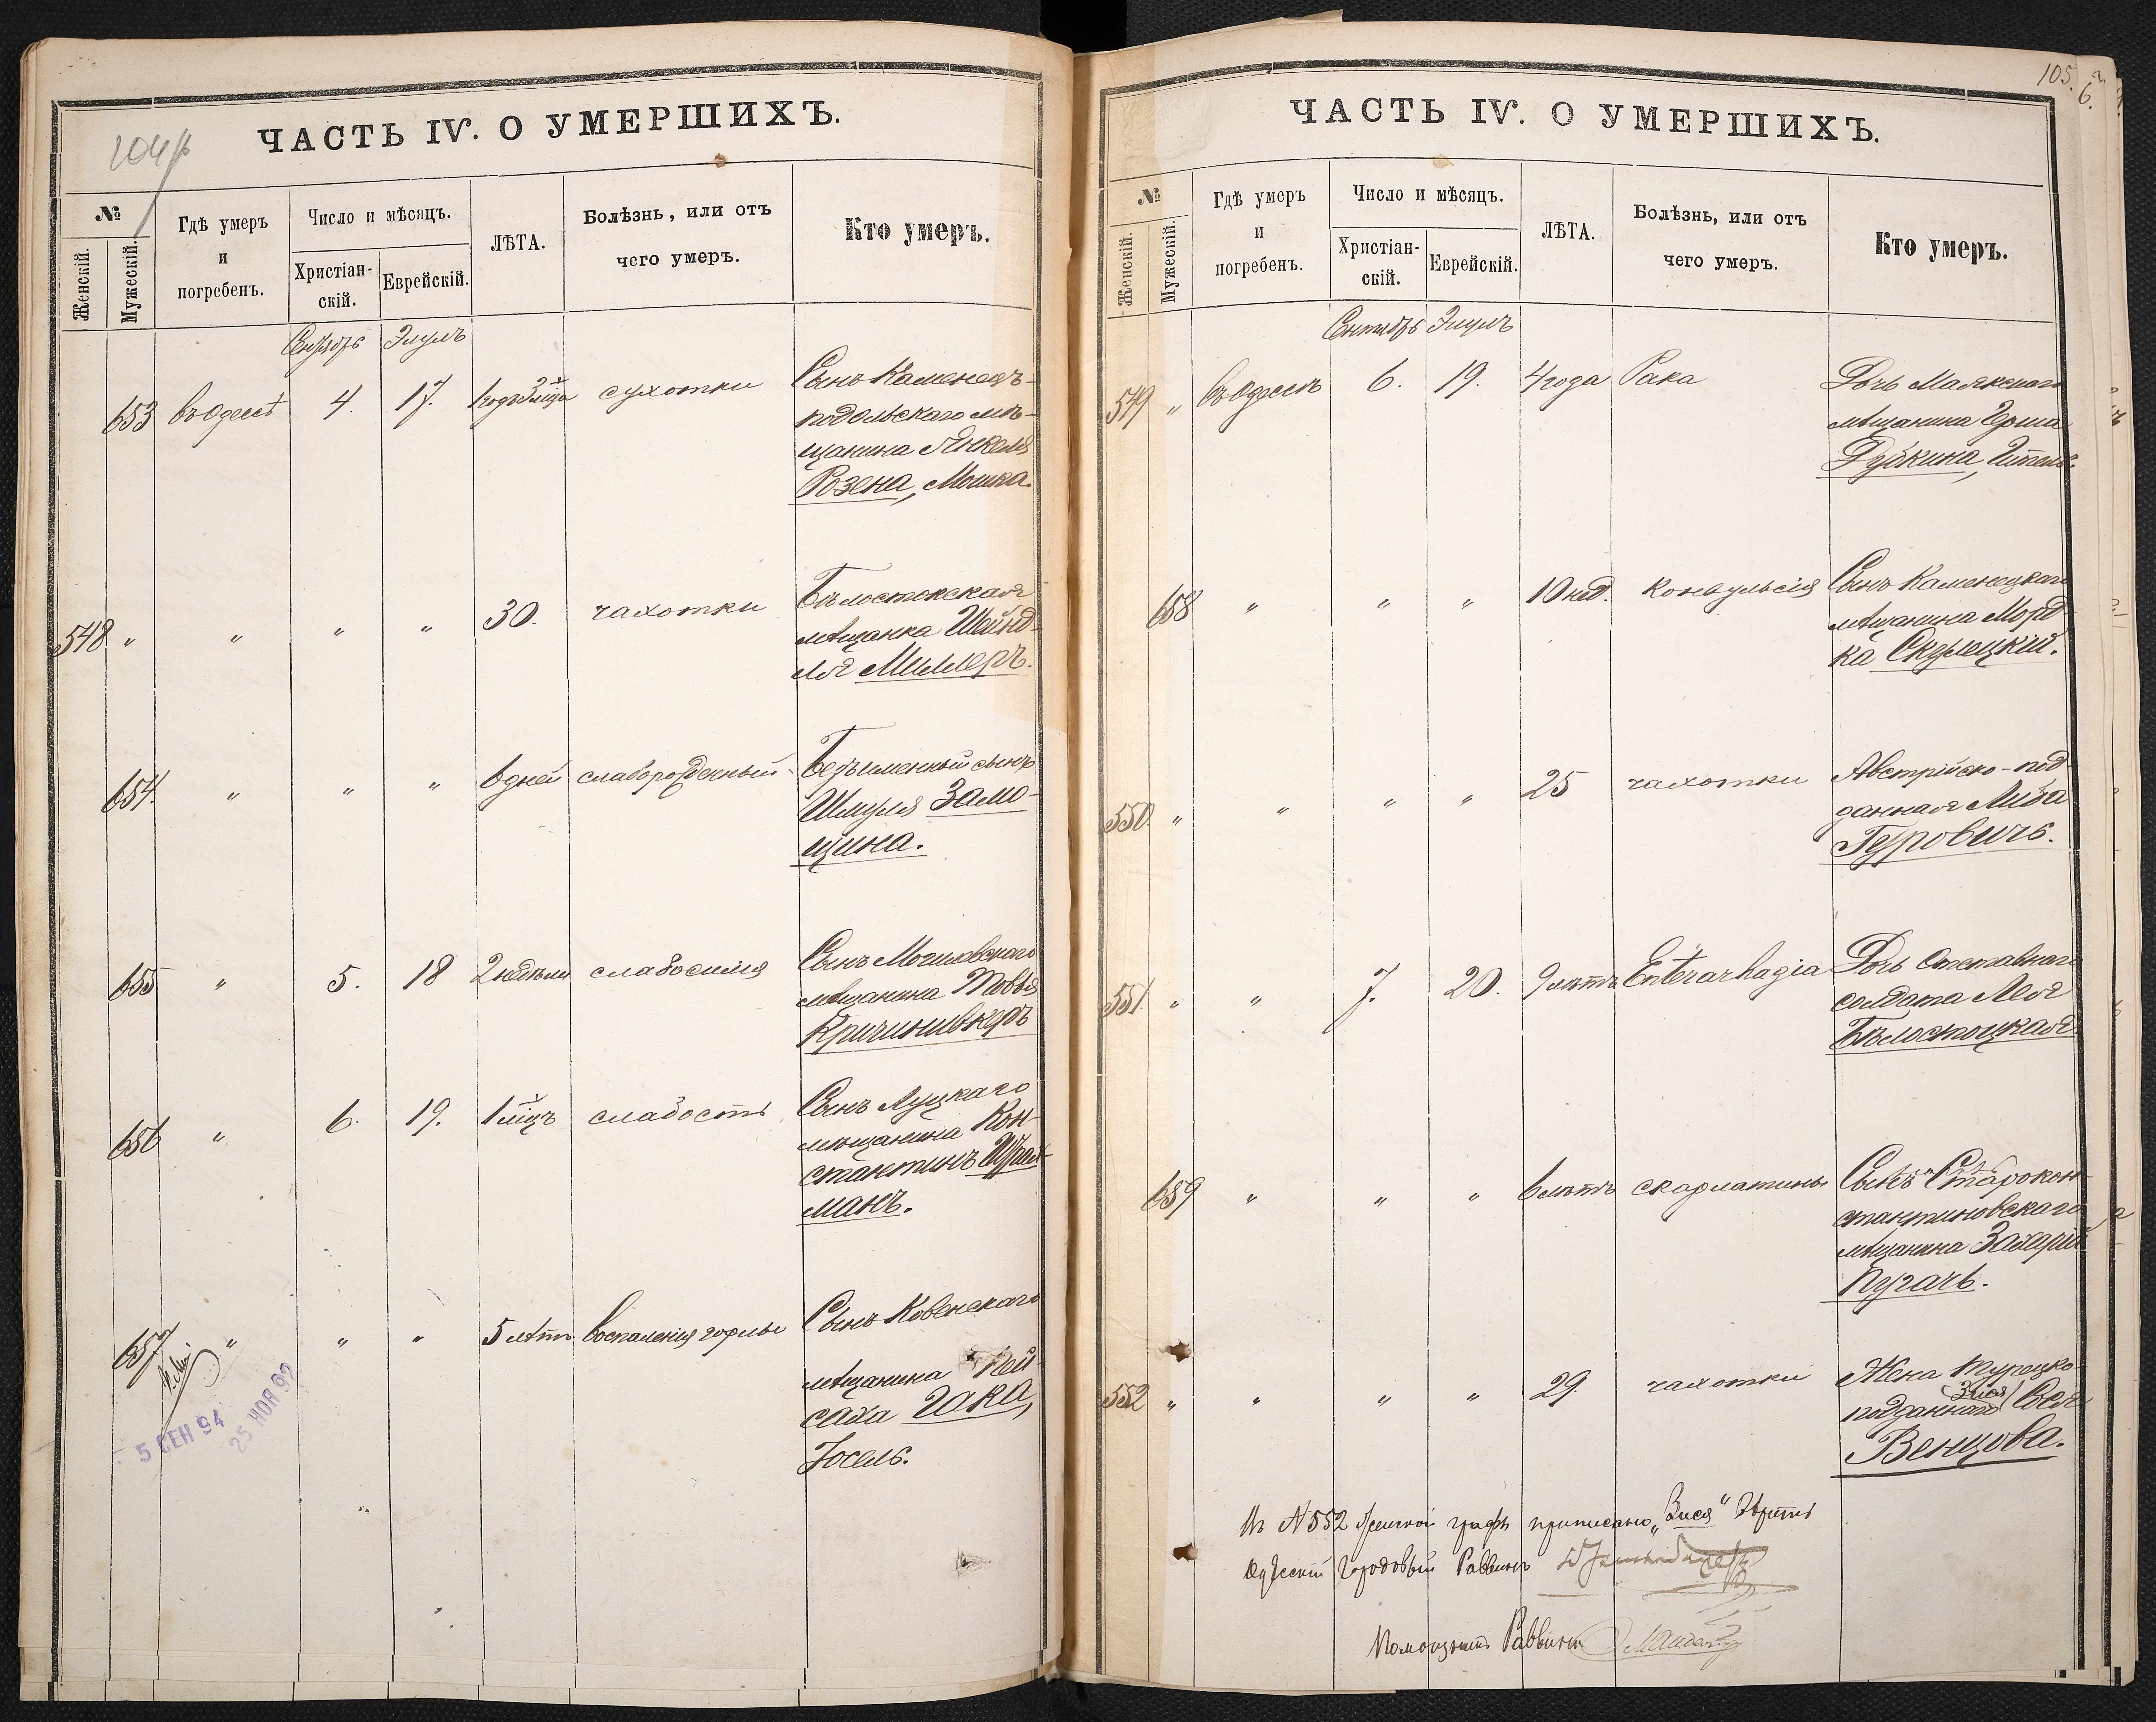 204
ЧАСТЬ IV. О УМЕРШИХЪ.
№
Женскій.
Мужескій.
Гдѣ умеръ
и
погребенъ.
Число и мѣсяцъ.
Христіан-
скій.
Еврейскій.
ЛѢТА.
Болѣзнь, или отъ
чего умеръ.
Кто умеръ.
Сентябрь Элулъ
653 въ Одессѣ 4. 17. 1 годъ 3 мѣсца сухотки Сынъ Каменецъ-
подольскаго мѣ-
щанина Янкеля
Розена, Мошка.
548 „ „ „ „ 30. чахотки Бѣлостокская
мѣщанка Шейнд-
ля Миллеръ.
654. „ „ „ 6 дней слаборожденный Безъименный сынъ
Шмуля Замо-
щина.
655 „ 5. 18 2 недѣли слабосилія Сынъ Могилевскаго
мѣщанина Товья
Кричиневкеръ
656 „ 6. 19. 1 мѣцъ слабость Сынъ Луцкаго
мѣщанина Кон-
стантинъ
манъ.
657 „ „ „ 5 лѣтъ воспаленія горлы Сынъ Ковенскаго
мѣщанина Пей-
саха Гака,
Іосель.
5 СЕН 94
25 НОЯ 92
105.
6.
ЧАСТЬ IV. О УМЕРШИХЪ.
№
Женскій.
Мужескій.
Гдѣ умеръ
и
погребенъ.
Число и мѣсяцъ.
Христіан-
скій.
Еврейскій.
ЛѢТА.
Болѣзнь, или отъ
чего умеръ.
Кто умеръ.
Сентябрь Элулъ
549 „ въ Одессѣ 6. 19. 4 года Рака Дочь Маякскаго
мѣщанина Герша
Дубкина,
658 „ „ „ 10 нед. конвульсія Сынъ Каменецкаго
мѣщанина Морд-
ка Скулецкій.
550. „ „ „ „ 25 чахотки Австрійско-под
данная Либа
Гуровичъ.
551. „ „ 7. 20. 9 лѣтъ Enterarhagia Дочь отставнаго
солдата Лея
Бѣлостоцкая
659 „ „ „ 6 лѣтъ скарлатины Сынъ Старокон-
стантиновскаго
мѣщанина Захарій
Пугачъ.
552 „ „ „ „ 29. чахотки Жена турецко-
Зися
подданнаго Сося
Венцова.
Въ №552 женской графѣ приписано „Зися“ вѣрить
Одесскій Городовый Раввинъ
Помощникъ Раввина